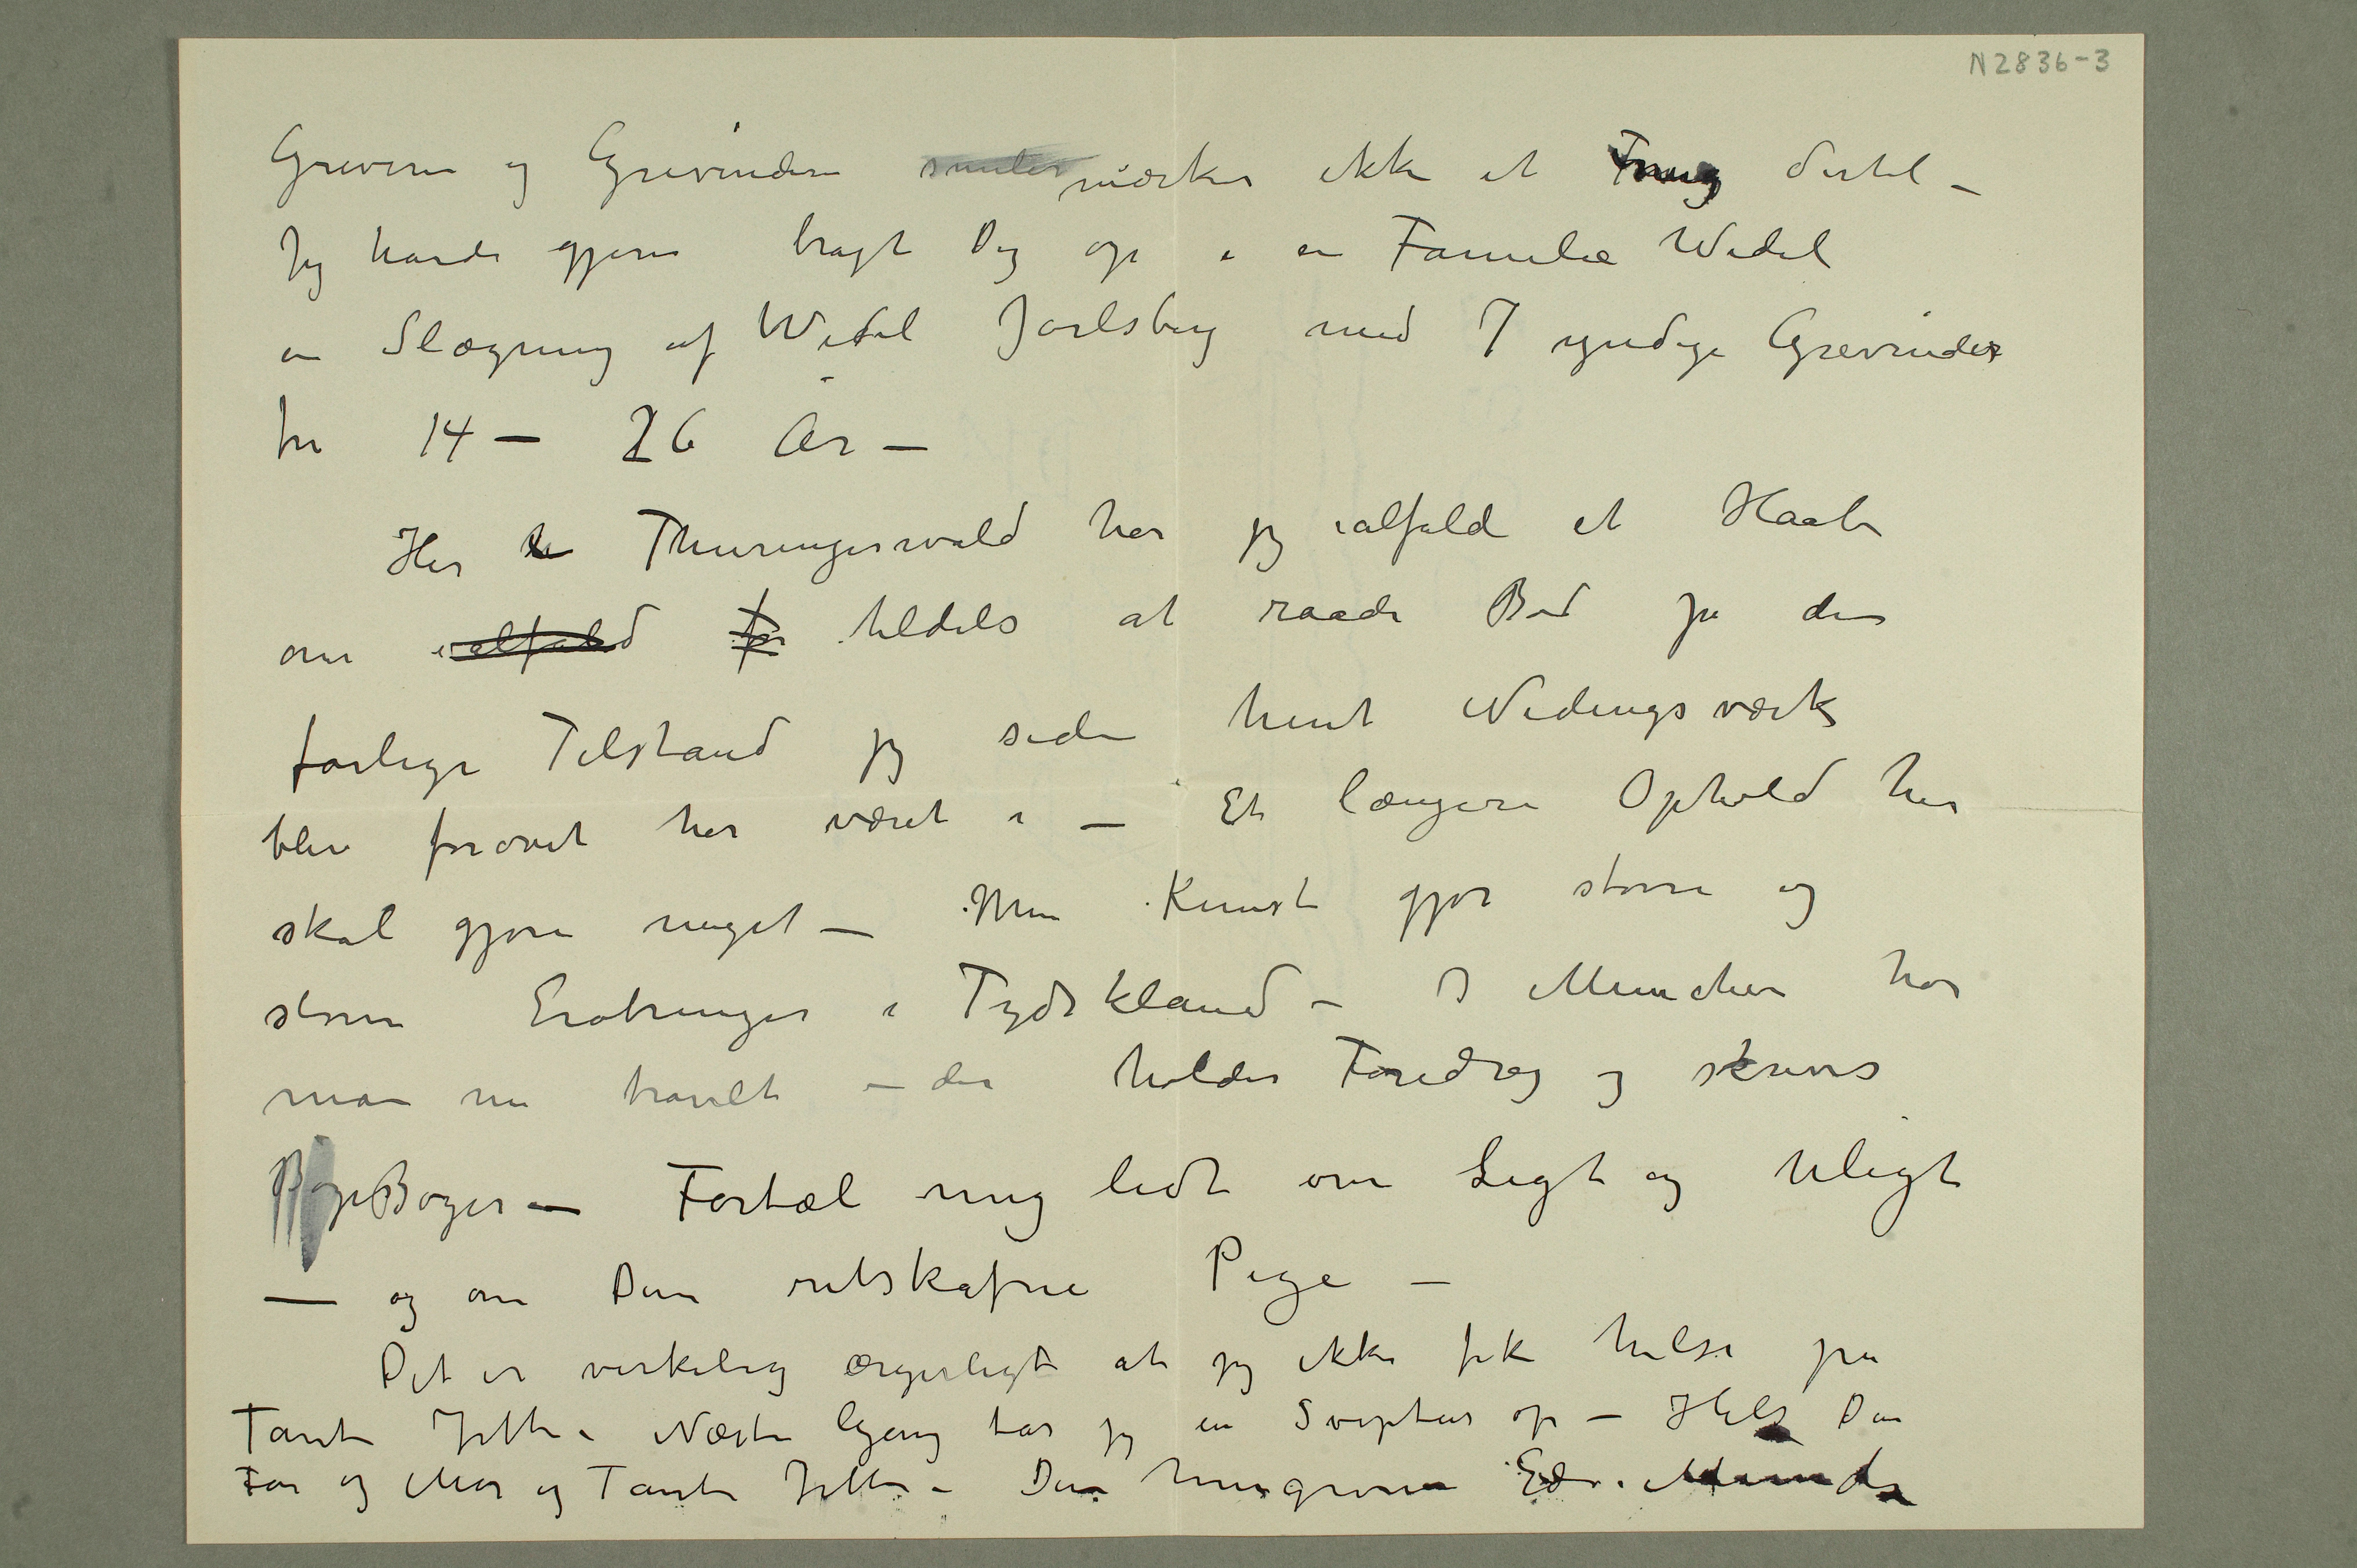 N 2836-3
Greven og Grevinden smiler mærker ikke et Frug dertil –
Jeg havde gjerne bragt Dig op i en Familie Wedel
en Slægning af Wedel Jarlsberg med 7 yndige Grevinder
fra 14 – 26 Ar –
Her Thuringerwald har jeg ialfald et Haab
om ialfald for tildels at raade Bod på den
farlige Tilstand jeg siden hint Nidingsværk
blev forøvet har været i – Et længere Ophold her
skal gjøre meget – Min Kunst gjør større og
større Erobringer i Tydskland – I Munchen har
man nu travelt – der holdes Foredrag og skrives
Bøge Bøger – Fortæl mig lidt om Ligt og Uligt
– og om Den retskafne Pige –
Det er virkelig ærgerligt at jeg ikke fik hilse på
Tante Jette. Næste Gang tar jeg en Sviptur op – Hils Din
Far og Mor og Tante Jette – Din hengivne Edv. Munch